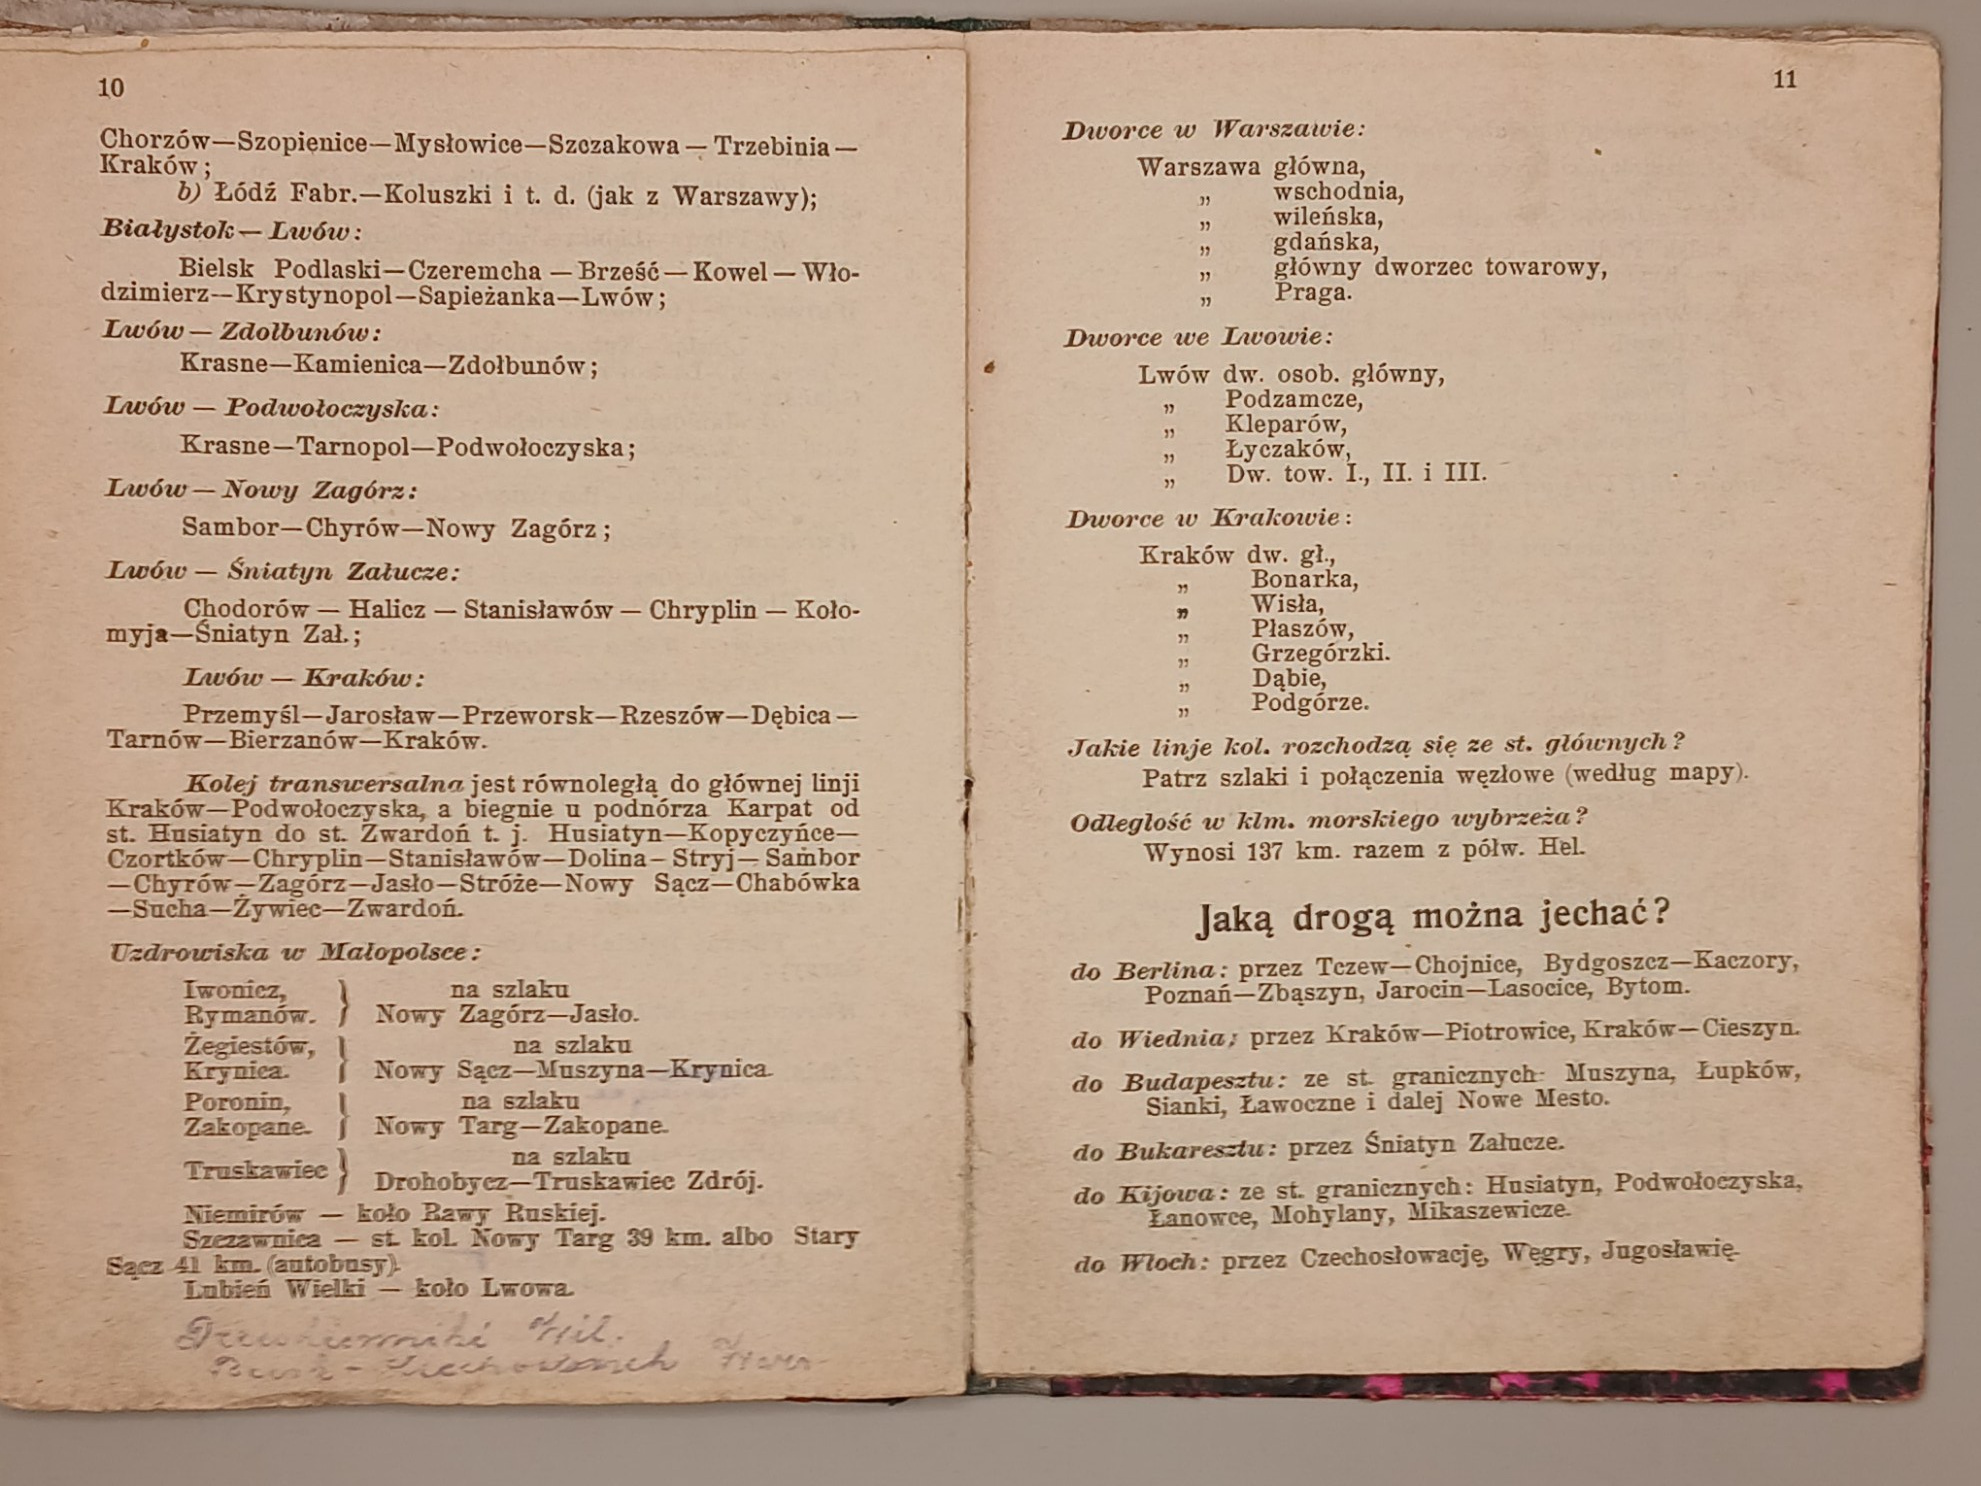 10
Chorzów—Szopienice—Mysłowice—Szczakowa — Trzebinia —
Kraków;
b) Łódź Fabr.—Koluszki i t. d. (jak z Warszawy);
Białystok — Lwów:
Bielsk Podlaski—Czeremcha — Brześć — Kowel — Wło-
dzimierz—Krystynopol—Sapieżanka—Lwów;
Lwów — Zdołbunów:
Krasne—Kamienica—Zdołbunów;
Lwów — Podwołoczyska:
Krasne—Tarnopol—Podwołoczyska;
Lwów — Nowy Zagórz:
Sambor—Chyrów—Nowy Zagórz;
Lwów — Śniatyn Załucze:
Chodorów — Halicz — Stanisławów — Chryplin — Koło-
myja—Śniatyn Zał.;
Lwów — Kraków:
Przemyśl—Jarosław—Przeworsk—Rzeszów—Dębica —
Tarnów—Bierzanów—Kraków.
Kolej transwersalna jest równoległą do głównej linji
Kraków—Podwołoczyska, a biegnie u podnórza Karpat od
st. Husiatyn do st. Zwardoń t. j. Husiatyn—Kopyczyńce—
Czortków—Chryplin—Stanisławów—Dolina—Stryj—Sambor
—Chyrów—Zagórz—Jasło—Stróże—Nowy Sącz—Chabówka
—Sucha—Żywiec—Zwardoń.
Uzdrowiska w Małopolsce:
Iwonicz, } na szlaku
Rymanów. } Nowy Zagórz—Jasło.
Żegiestów, } na szlaku
Krynica. } Nowy Sącz—Muszyna—Krynica.
Poronin, } na szlaku
Zakopane. } Nowy Targ—Zakopane.
Truskawiec } na szlaku
Drohobycz—Truskawiec Zdrój.
Niemirów — koło Rawy Ruskiej.
Szczawnica — st. kol. Nowy Targ 39 km. albo Stary
Sącz 41 km. (autobusy).
Lubień Wielki — koło Lwowa.
Wil.
11
Dworce w Warszawie:
Warszawa główna,
„ wschodnia,
„ wileńska,
„ gdańska,
„ główny dworzec towarowy,
„ Praga.
Dworce we Lwowie:
Lwów dw. osob. główny,
„ Podzamcze,
„ Kleparów,
„ Łyczaków,
„ Dw. tow. I., II. i III.
Dworce w Krakowie:
Kraków dw. gł.,
„ Bonarka,
„ Wisła,
„ Płaszów,
„ Grzegórzki.
„ Dąbie,
„ Podgórze.
Jakie linje kol. rozchodzą się ze st. głównych?
Patrz szlaki i połączenia węzłowe (według mapy).
Odległość w klm. morskiego wybrzeża?
Wynosi 137 km. razem z półw. Hel.
Jaką drogą można jechać?
do Berlina: przez Tczew—Chojnice, Bydgoszcz—Kaczory,
Poznań—Zbąszyn, Jarocin—Lasocice, Bytom.
do Wiednia; przez Kraków—Piotrowice, Kraków—Cieszyn.
do Budapesztu: ze st. granicznych: Muszyna, Łupków,
Sianki, Ławoczne i dalej Nowe Mesto.
do Bukaresztu: przez Śniatyn Załucze.
do Kijowa: ze st. granicznych: Husiatyn, Podwołoczyska,
Łanowce, Mohylany, Mikaszewicze.
do Włoch: przez Czechosłowację, Węgry, Jugosławię.